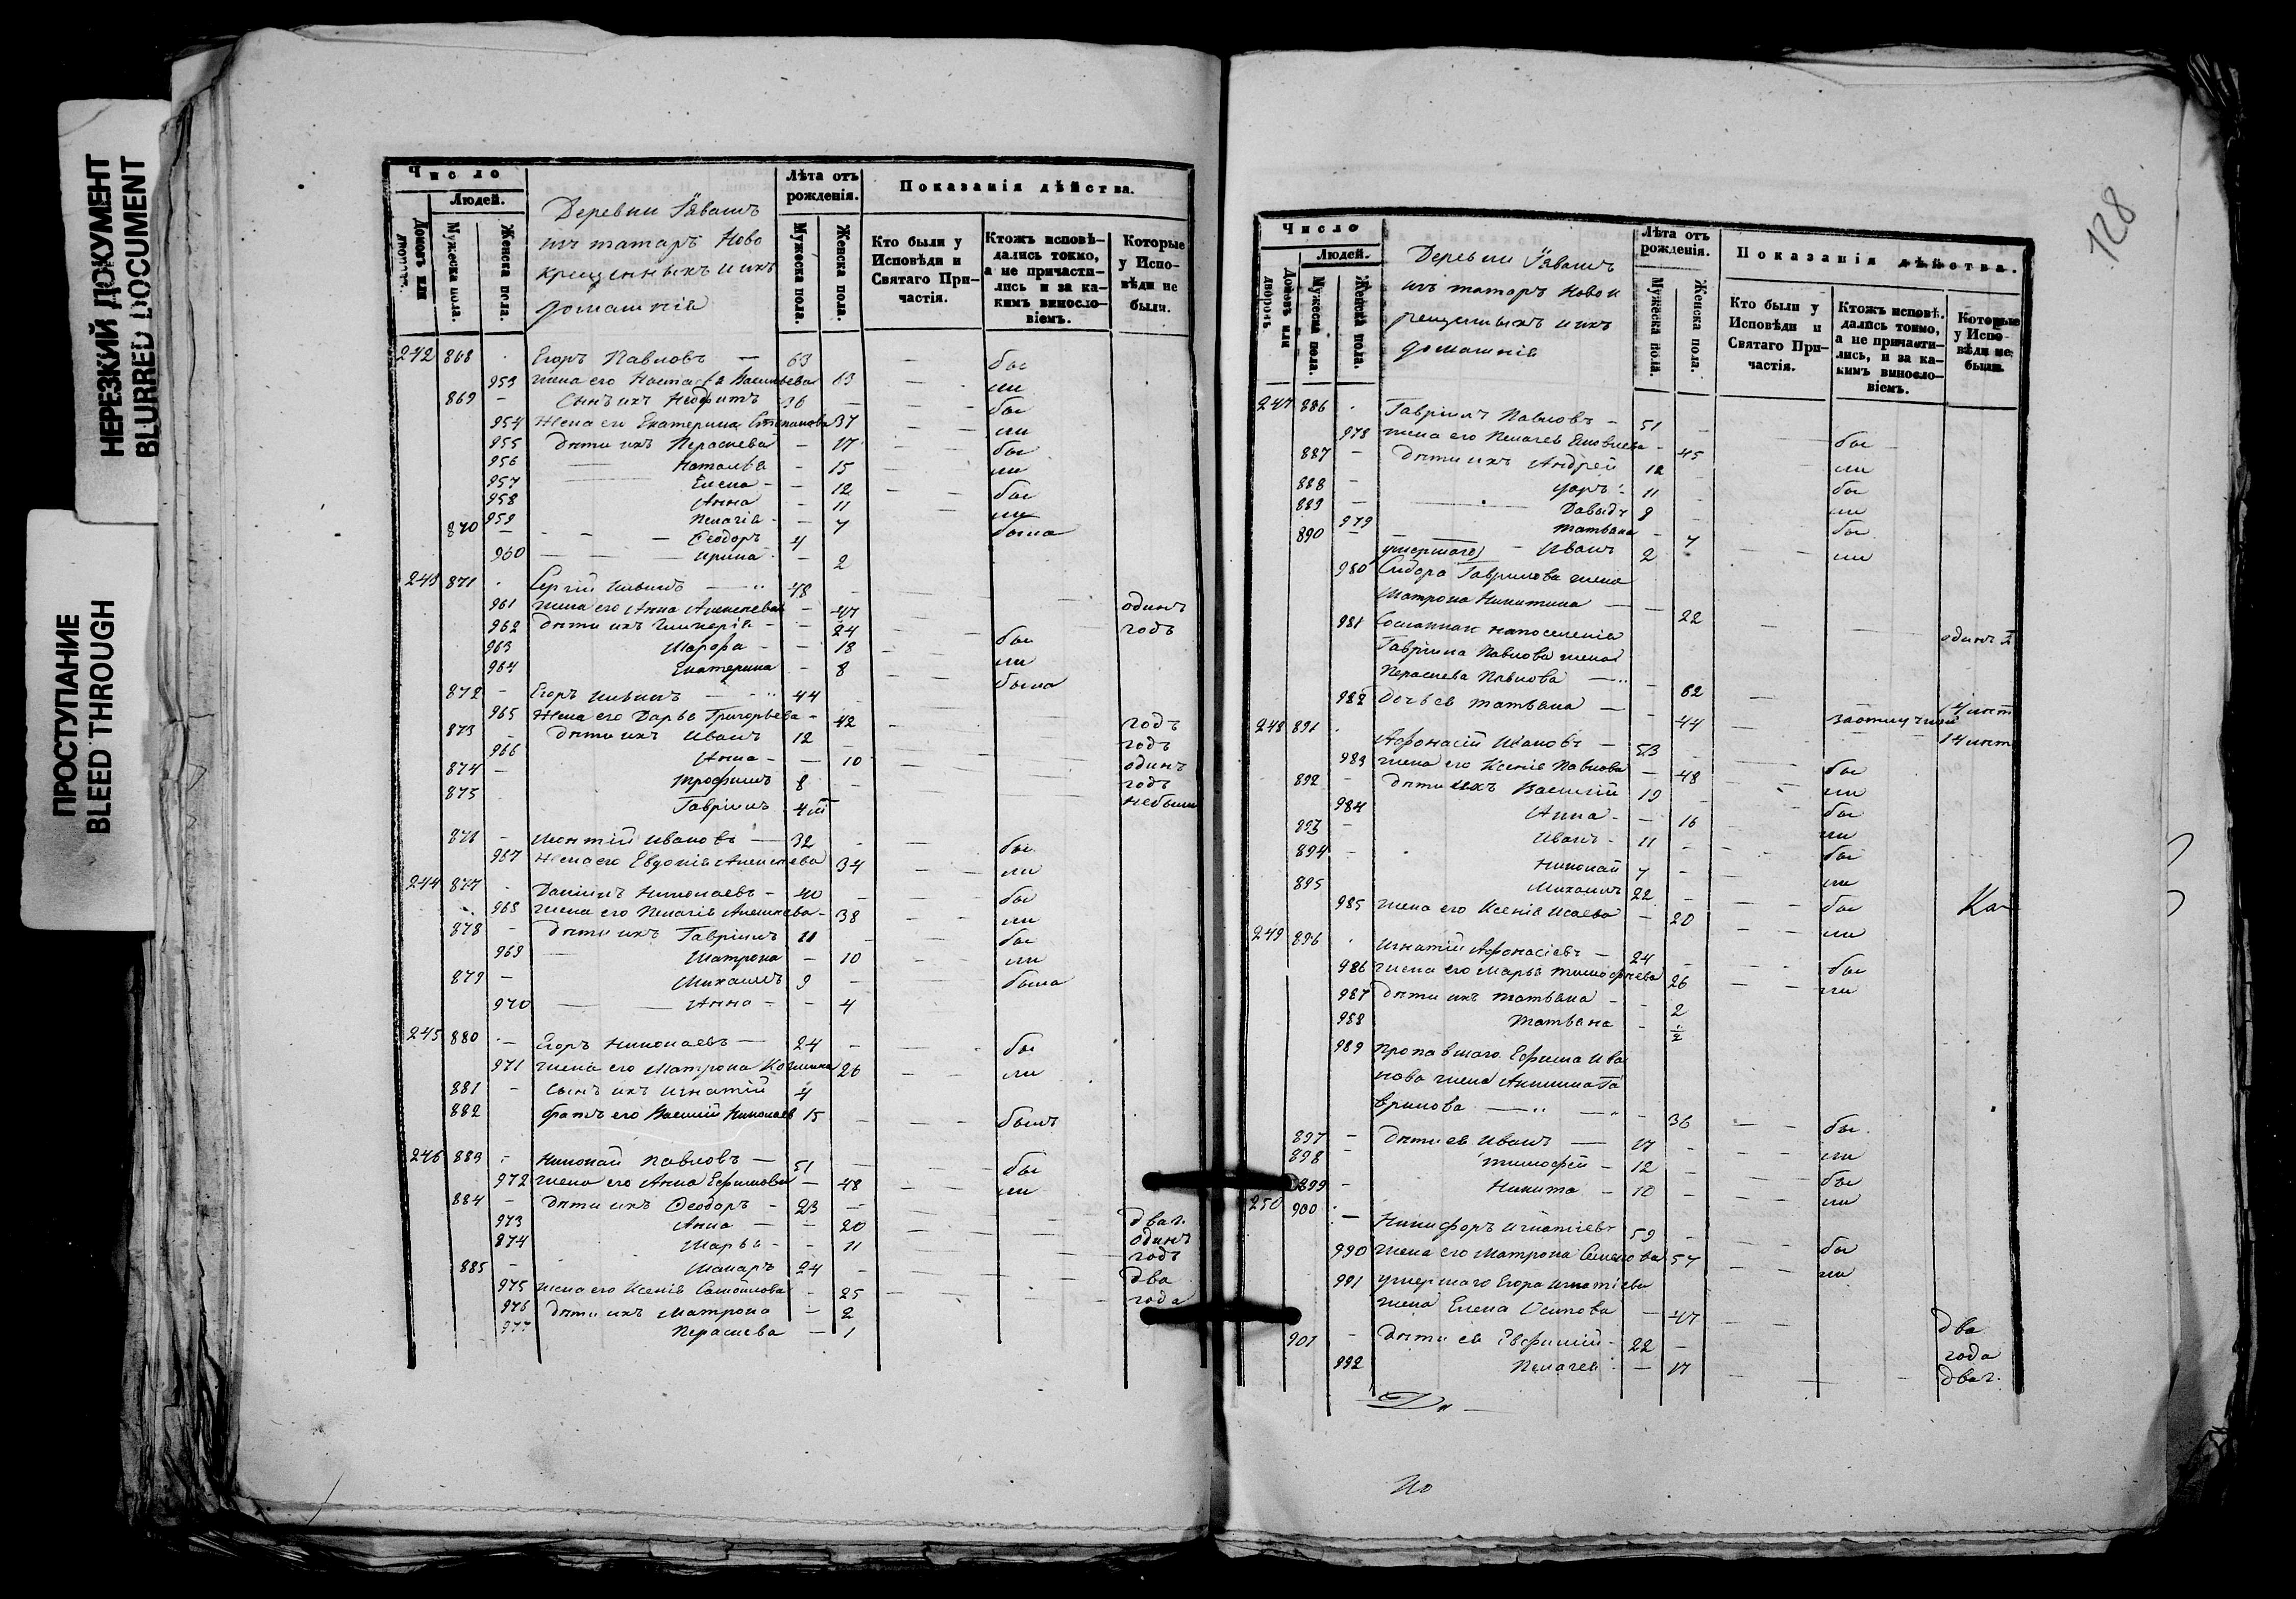 НЕРЕЗКИЙ ДОКУМЕНТ
BLURRED DOCUMENT
ПРОСТУПАНИЕ
BLEED THROUGH
Число
Людей.
Домовъ или дворовъ.
Мужеска пола.
Женска пола.
Деревни
изъ татаръ Ново
крещенныхъ и ихъ
домашнія
Лѣта отъ рожденія.
Мужеска пола.
Женска пола.
Показанія дѣйства.
Кто были у Исповѣди и Святаго Причастія.
Ктожъ исповѣдались токмо, а не причастились и за какимъ винословіемъ.
Которые у Исповѣди не были.
242 868 Егоръ Павловъ — 63 бы
953 жена его Настасья Васильева 63 ли
869 — Сынъ ихъ Неофитъ 36 — бы
954 Жена его Екатерина Степанова 37 ли
955 Дѣти ихъ Перасковья — 17 бы
956 Наталья — 15 ли
957 Елена — 12 бы
958 Анна — 11 ли
959 Пелагія — 7 была
870 — Ѳеодоръ 4
960 Ирина — 2
243 871 Сергій Ильинъ 48 — одинъ
961 жена его Анна Алексеева — 47 годъ
962 дѣти ихъ Гликерія — 24 бы
963 Марфа — 18 ли
964 Екатерина — 8 была
872 — Егоръ Ильинъ 44
965 Жена его Дарья Григорьева — 42 годъ
873 — дѣти ихъ Иванъ 12 годъ
966 Анна — 10 одинъ
874 — Трофимъ 8 — годъ
875 Гавріилъ 4 небыли
876 — Ивановъ — 32 бы
967 Жена его Евдокія Алексеева 34 ли
244 877 Даніилъ Николаевъ — 40 бы
968 жена его Пелагія Алексеева — 38 ли
878 — дѣти ихъ Гавріилъ 11 — бы
969 Матрона — 10 ли
879 — Михаилъ 9 — была
970 Анна — 4
245 880 — Егоръ Николаевъ — 24 — бы
971 жена его Матрона 26 ли
881 — Сынъ ихъ Игнатій 4
882 братъ его Василій Николаев 15 — былъ
246 883 Николай Павловъ — 51 — бы
972 жена его Анна Ефимова — 48 ли
884 — дѣти ихъ Ѳеодоръ — 23 — два г.
973 Анна — 20 одинъ
874 Марья — 11 годъ
885 — Макаръ 24 два
975 жена его Ксенія Самойлова — 25 года
976 дѣти ихъ Матрона — 2
977 Перасковья — 1
128
Число
Людей.
Домовъ или дворовъ.
Мужеска пола.
Женска пола.
Деревни
изъ татаръ Новок
рещенныхъ и ихъ
домашнія
Лѣта отъ рожденія.
Мужеска пола.
Женска пола.
Показанія дѣйства.
Кто были у Исповѣди и Святаго Причастія.
Ктожъ исповѣдались токмо, а не причастились, и за какимъ винословіемъ.
Которые у Исповѣди не были.
247 886 Гавріилъ Павловъ — 51 — бы
978 жена его Пелагея — 45 ли
887 — дѣти ихъ Андрей 12 бы
888 — 11 ли
889 — Давыдъ 9 бы
979 Татьяна — 7 ли
890 — Иванъ 2
умершаго
980 Сидора Гаврилова жена
Матрона Никитина — 22
981 Сосланнаго напоселеніе
Гавріила Павлова жена
Перасковья Павлова — 62
982 Дочь ея Татьяна — 44
248 891 Афонасій — 53 бы
983 жена его Ксенія Павлова — 48 ли
892 — дѣти ихъ Василій 19 бы
984 Анна — 16 ли
893 — Иванъ — 11 бы
894 — Николай 7 ли
895 Михаилъ 22 бы
985 жена его Ксенія Исаева — 20 ли
249 896 Игнатій Афонасіевъ — 24 бы
986 жена его Марья Тимофѣева 26 ли
987 дѣти ихъ Татьяна — 2
988 Татьяна — ½
989 пропавшаго Ефима Ива
нова жена Акилина Га
врилова — 36 бы
897 — дѣти ея Иванъ — 17 ли
898 — Тимофей — 12 бы
899 — Никита — 10 ли
250 900 Никифоръ Игнатіевъ 59 бы
990 жена его Матрона Семенова 57 ли
991 умершаго Егора Игнатіева
жена Елена Осипова — 47 два
901 — Дѣти ея Евфимій — 22 — года
992 Пелагея — 17 два г.